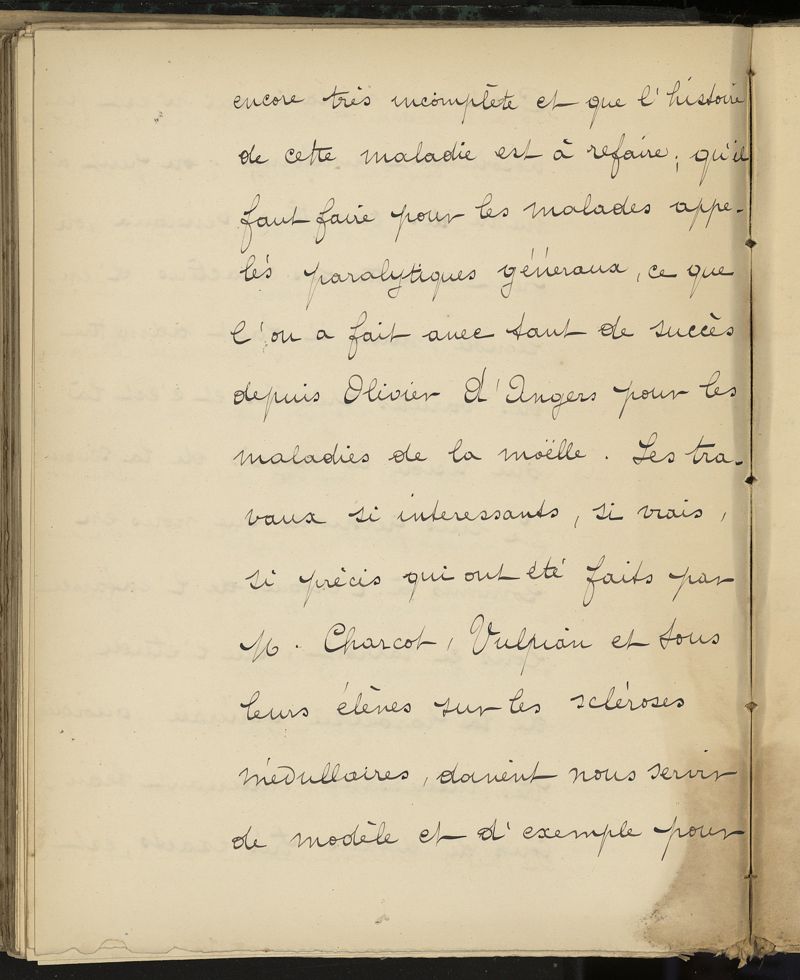 encore très incomplète et que l'histoire
de cette maladie est à refaire ; qu'il
faut faire pour les malades appe-
lés paralytiques généraux, ce que
l'on a fait avec tant de succès
depuis Olivier d'Angers pour les
maladies de la moëlle . Les tra-
vaux si interessants, si vrais,
si précis qui ont été faits par
M. Charcot, Vulpian et tous
leurs élèves sur les scléroses
médullaires, doivent nous servir
de modèle et d'exemple pour